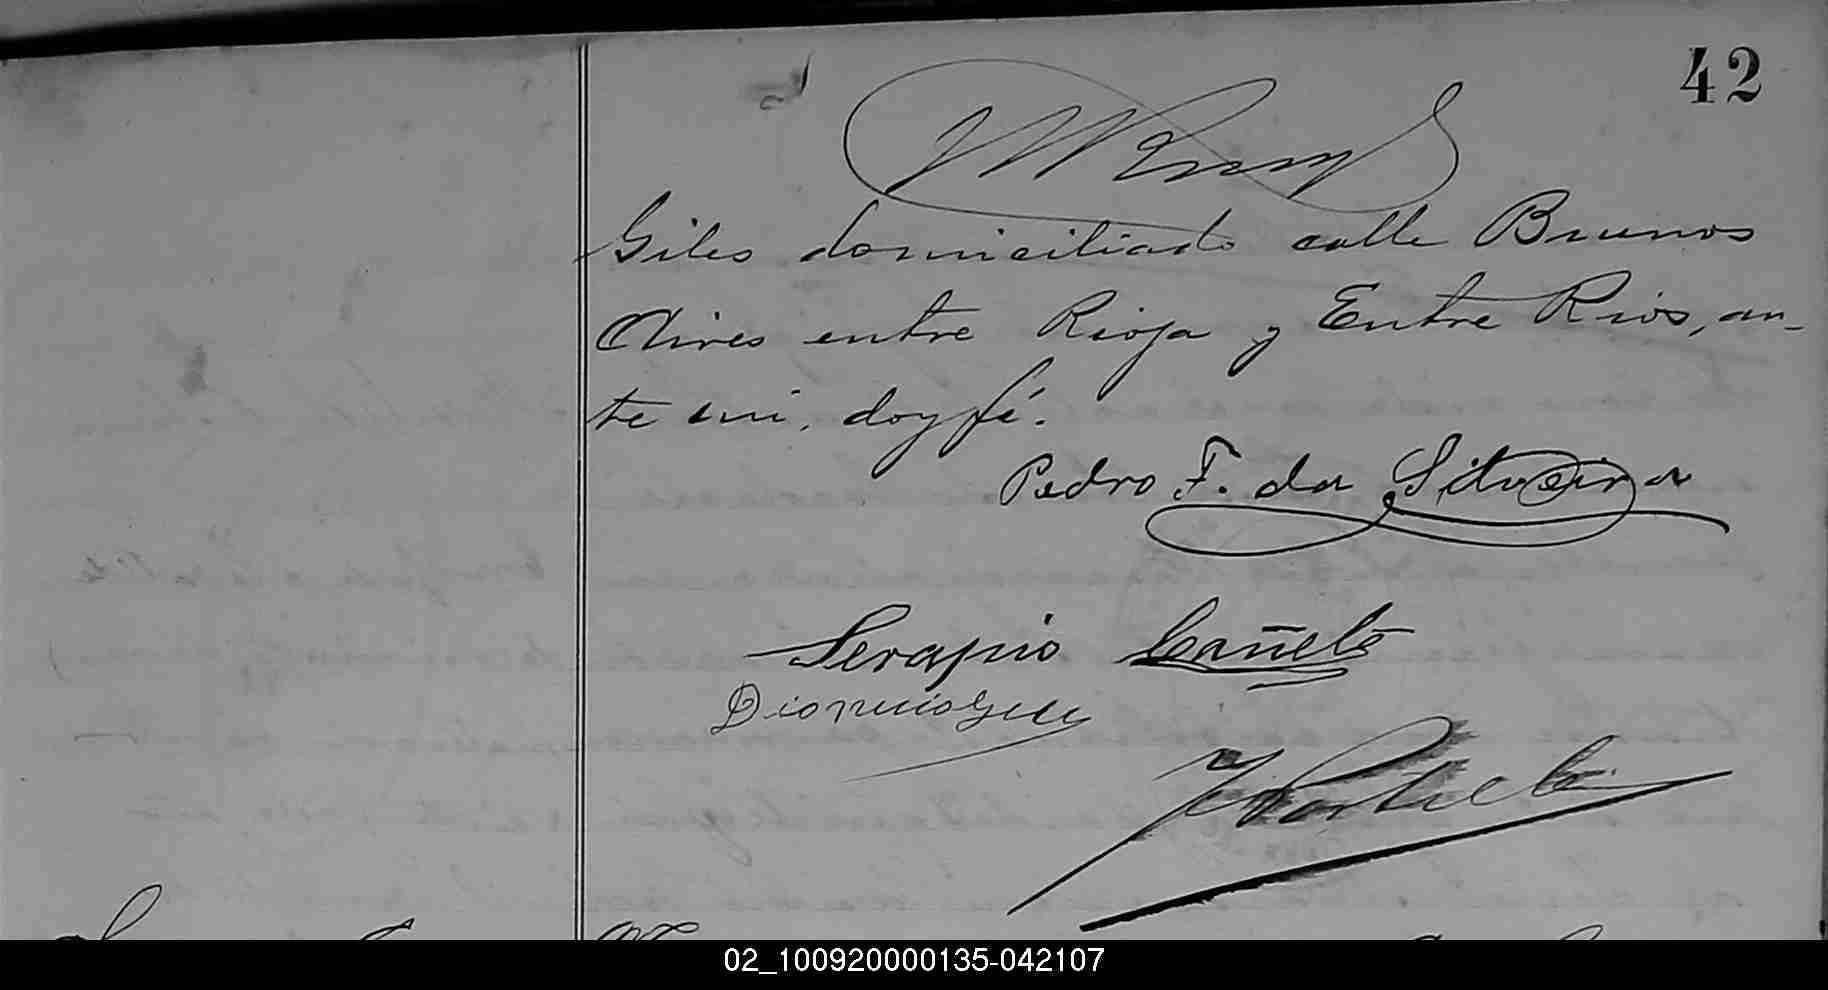 42
Giles domiciliado calle Buenos
Aires entre Rioja y Entre Rios, an-
te mi, doy fé.
Pedro F. da Silveira
Serapio Cañete
Dionicio Giles
02_100920000135-042107